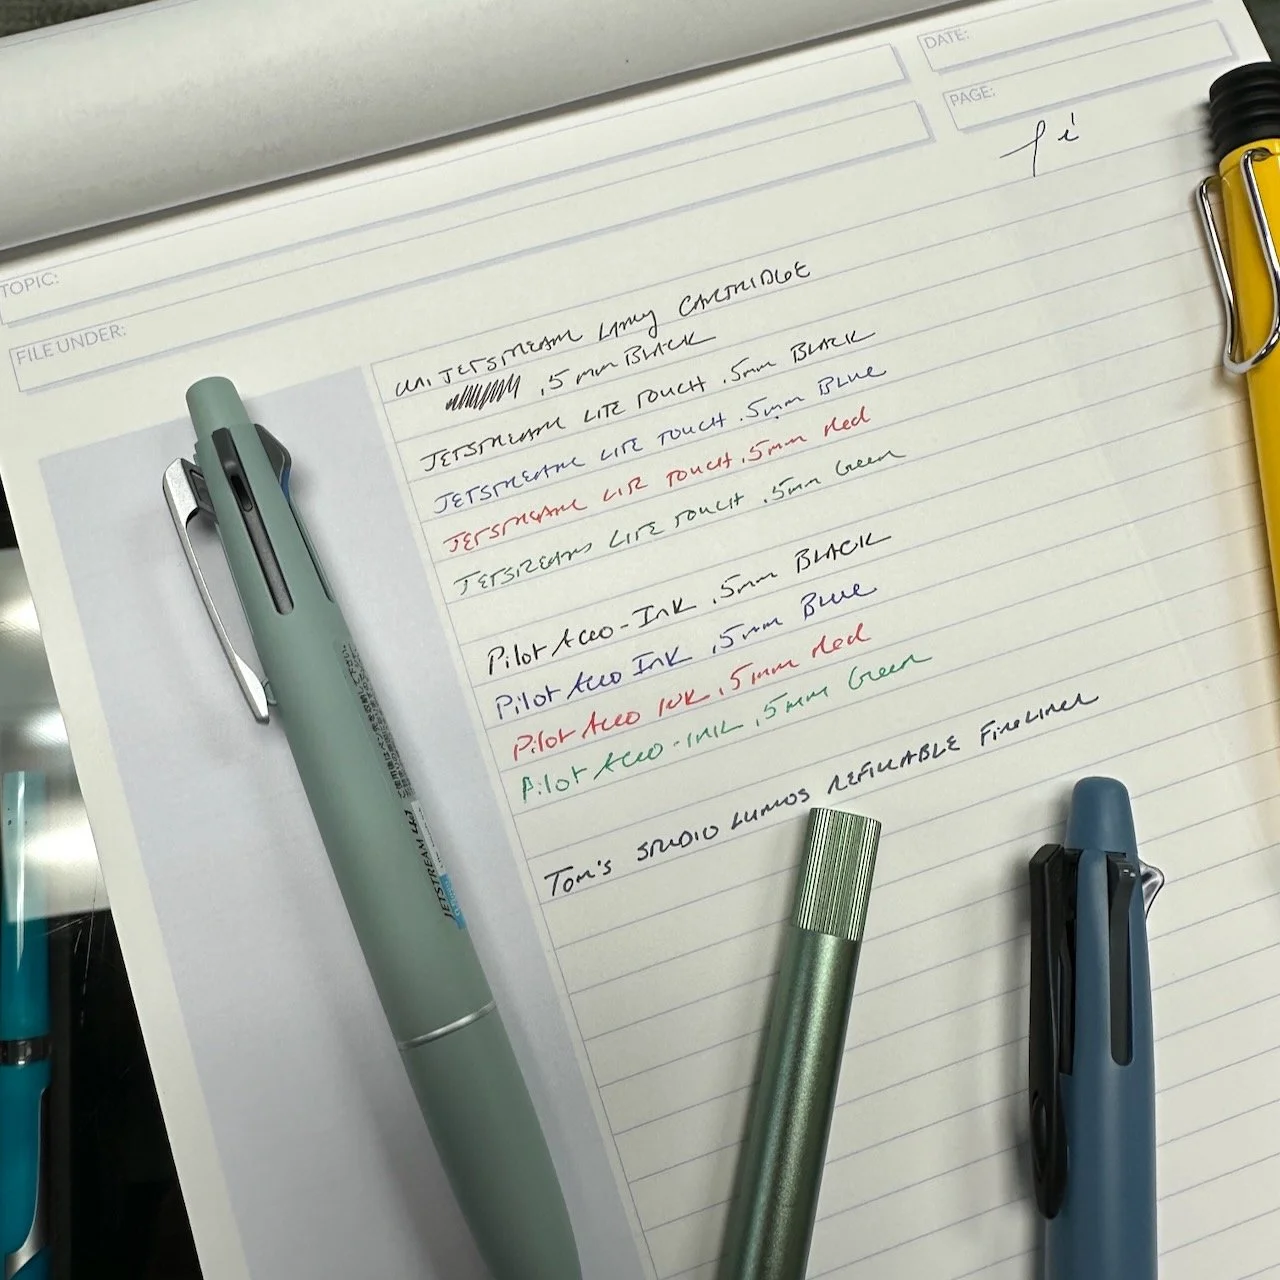 DATE:
PAGE:
TOPIC:
FILE UNDER:
Uni JETSTREAM LAMY CARTRIDGE
.5mm BLACK
JETSTREAM LITE TOUCH .5mm BLACK
JETSTREAM LITE TOUCH .5mm Blue
JETSTREAM LITE TOUCH .5mm Red
JETSTREAM LITE TOUCH .5mm Green
Pilot Acro-Ink .5mm BLACK
Pilot Acro Ink .5mm Blue
Pilot Acro INK .5mm Red
Pilot Acro-INK .5mm Green
Tom's STUDIO LUMOS REFILLABLE FineLiner
JETSTREAM 4&1